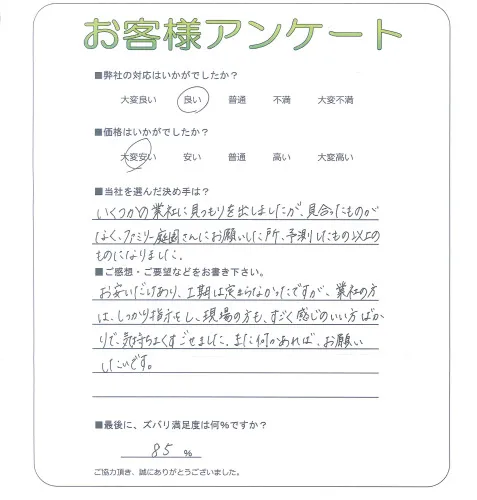 お客様アンケート
■弊社の対応はいかがでしたか？
大変良い 良い 普通 不満 大変不満
■価格はいかがでしたか？
大変安い 安い 普通 高い 大変高い
■当社を選んだ決め手は？
いくつかの業社に見つもりを出しましたが、見合ったものが
なく、ファミリー庭園さんにお願いした所、予測したもの以上の
ものになりました.
■ご感想・ご要望などをお書き下さい。
お安いだけあり、工期は定まらなかったですが、業社の方
は、しっかり指示をし、現場の方も、すごく感じのいい方ばか
りで、気持ちよくすごせました、また何かあれば、お願い
したいです。
■最後に、ズバリ満足度は何%ですか？
85 %
ご協力頂き、誠にありがとうございました。